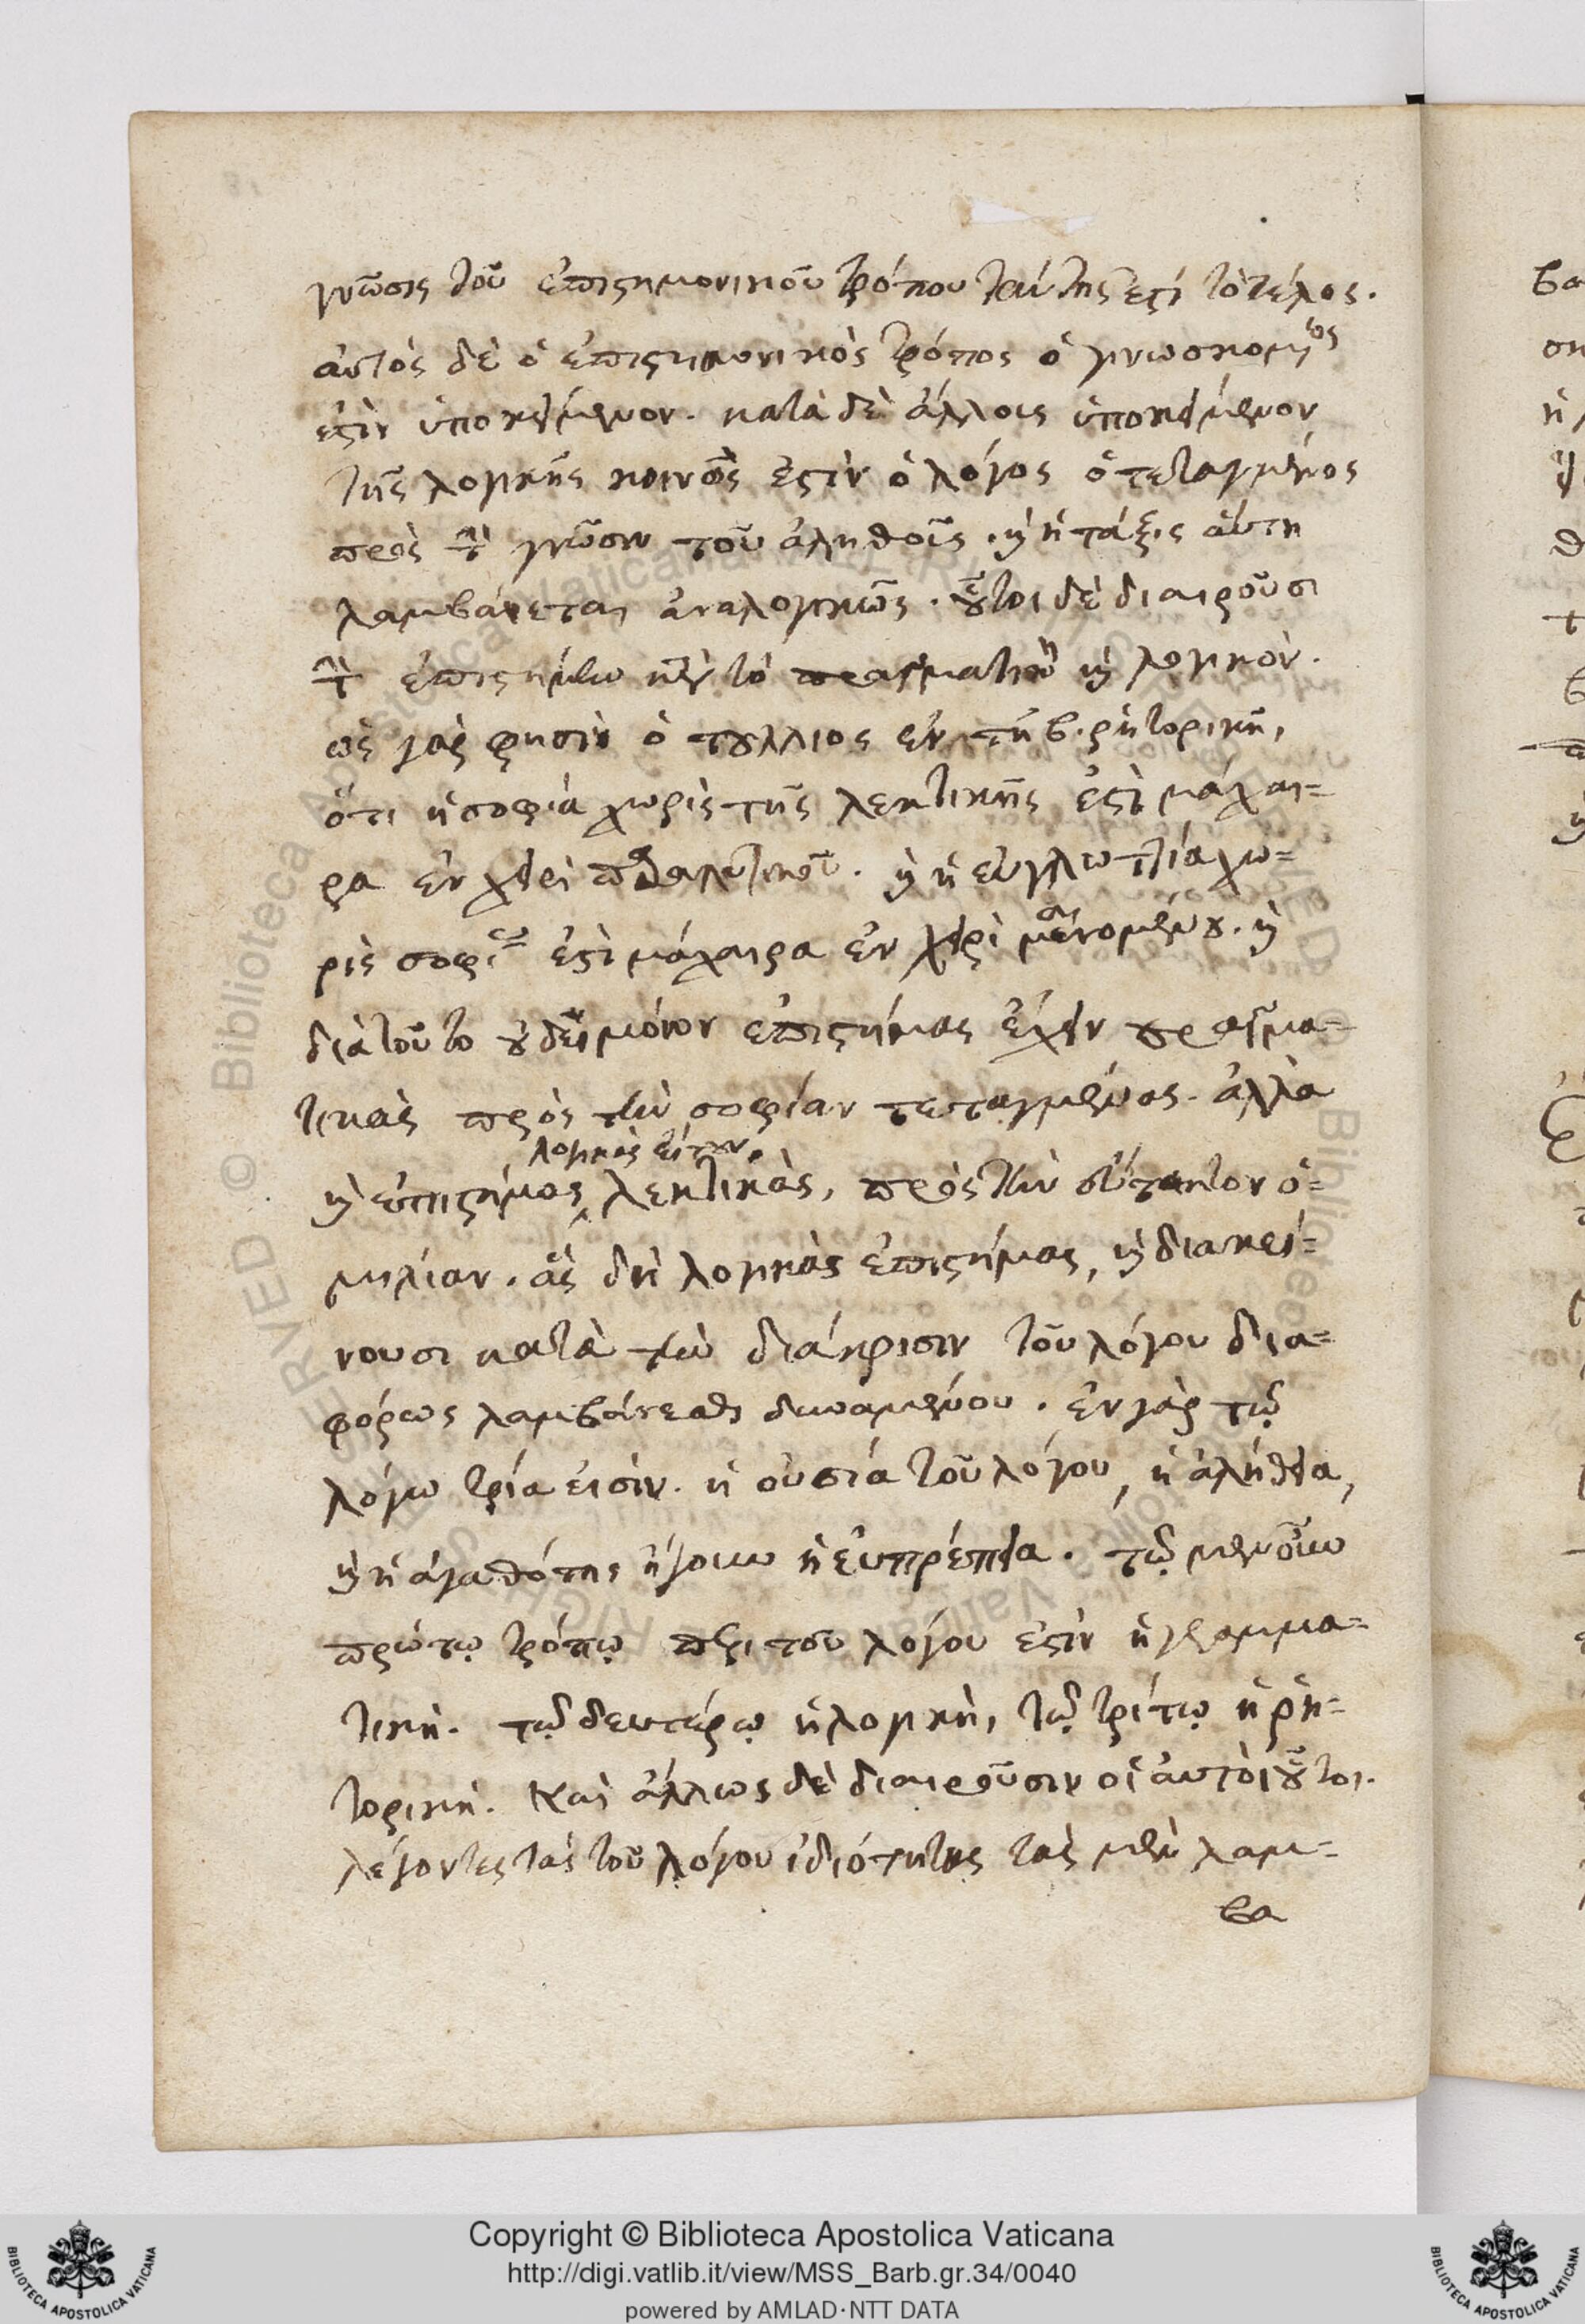 γνῶσις τοῦ ἐπιστημονικοῦ τρόπου ταύτης ἐστὶ τὸ τέλος.
αὐτὸς δὲ ὁ ἐπιστημονικὸς τρόπος ὁ γινωσκόμενος
ἐστὶν ὑποκείμενον. κατὰ δὲ ἄλλοις ὑποκείμενον
τῆς λογικῆς κοινῶς ἐστὶν ὁ λόγος ὁ τεταγμένος
πρὸς τὴν γνῶσιν τοῦ ἀληθοῦς. καὶ ἡ τάξις αὕτη
λαμβάνεται ἀναλογικῶς. οὗτοι δὲ διαιροῦσι
τὴν ἐπιστήμην εἰς τὸ πραγματικὸν καὶ λογικόν.
ὡς γάρ φησιν ὁ τούλλιος ἐν τῇ β. ῥητορικῇ,
ὅτι ἡ σοφία χωρὶς τῆς λεκτικῆς ἐστὶ μάχαι=
ρα ἐν χειρὶ παραλυτικοῦ. καὶ ἡ εὐγλωττία χω=
ρὶς σοφίας ἐστὶ μάχαιρα ἐν χειρὶ μαινομένου. καὶ
διὰ τοῦτο οὐ δεῖ μόνον ἐπιστήμας ἔχειν πραγμα=
τικὰς πρὸς τὴν σοφίαν τεταγμένας. ἀλλὰ
λογικὰς εἴτουν
καὶ ἐπιστήμας λεκτικὰς, πρὸς τὴν εὔτακτον ὁ=
μιλίαν. ἃς δὴ λογικὰς ἐπιστήμας, καὶ διακρί=
νουσι κατὰ τὴν διάκρισιν τοῦ λόγου δια=
φόρως λαμβάνεσθαι δυναμένου. ἐν γὰρ τῷ
λόγω τρία εἰσίν. ἡ οὐσία τοῦ λόγου, ἡ ἀλήθεια,
καὶ ἡ ἀγαθότης ἤγουν ἡ εὐπρέπεια. τῷ μὲν οὖν
πρώτῳ τρόπῳ περὶ τοῦ λόγου ἐστὶν ἡ γραμμα=
τική. τῷ δευτέρῳ ἡ λογικὴ, τῷ τρίτῳ ἡ ῥη=
τορική. Καὶ ἄλλως δὲ διαιροῦσιν οἱ αὐτοὶ οὗτοι.
λέγοντες τὰς τοῦ λόγου ἰδιότητας τὰς μὲν λαμ=
βα
Copyright © Biblioteca Apostolica Vaticana
http://digi.vatlib.it/view/MSS_Barb.gr.34/0040
powered by AMLAD·NTT DATA
BIBLIOTECA APOSTOLICA VATICANA
BIBLIOTECA APOSTOLICA VATICANA